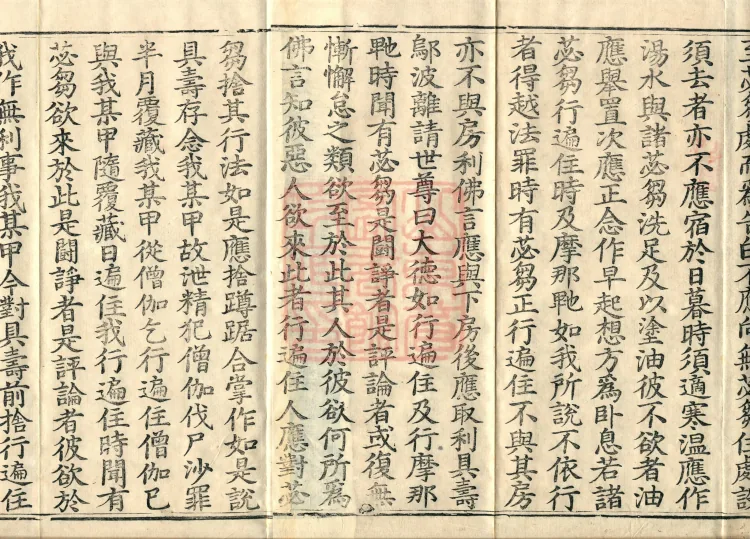 須去者亦不應宿於日暮時須適寒溫應作
湯水與諸苾芻洗足及以塗油彼不欲者油
應舉置次應正念作早起想方爲卧息若諸
苾芻行遍住時及摩那如我所說不依行
者得越法罪時有苾芻正行遍住不與其房
亦不與房利佛言應與下房後應取利具壽
鄔波離請世尊曰大德如行遍住及行摩那
時聞有苾芻是鬪諍者是評論者或復無
慚懈怠之類欲至於此其人於彼欲何所爲
佛言知彼惡人欲來此者行遍住人應對苾
芻捨其行法如是應捨蹲踞合掌作如是說
具壽存念我某甲故泄精犯僧伽伐尸沙罪
半月覆藏我某甲從僧伽乞行遍住僧伽已
與我某甲隨覆藏日遍住我行遍住時聞有
苾芻欲來於此是鬪諍者是評論者彼欲於
我作無利事我某甲今對具壽前捨行遍住